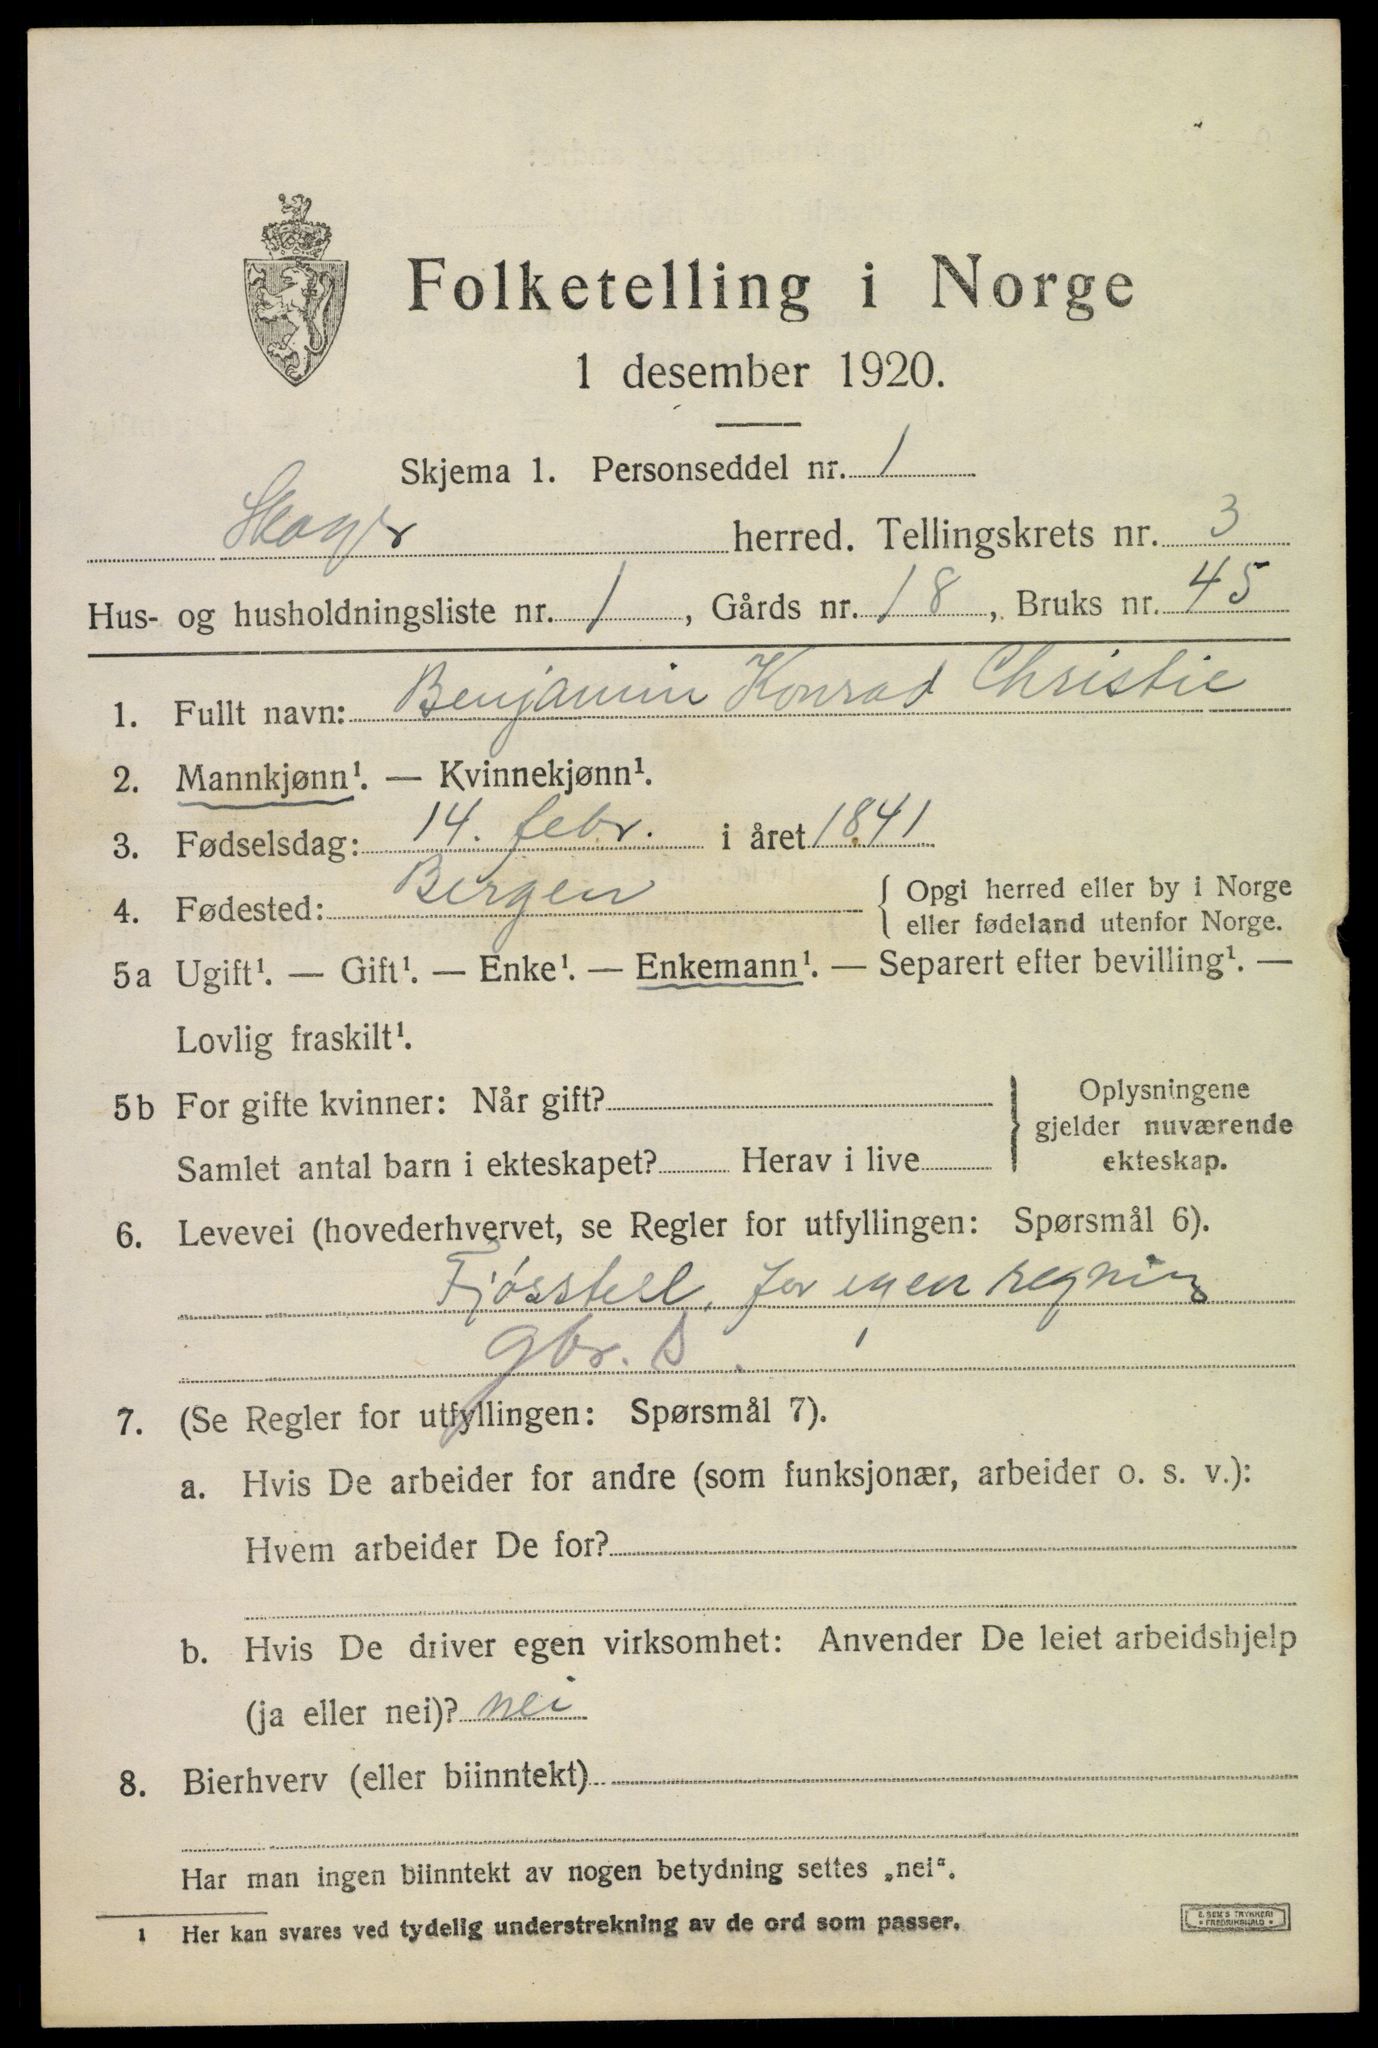 Folketelling i Norge
1 desember 1920.
Skjema 1. Personseddel nr. 1
Skoger herred. Tellingskrets nr. 3
Hus- og husholdningsliste nr. 1, Gårds nr. 18, Bruks nr. 45
1. Fullt navn: Benjamin Konrad Christie
2. Mannkjønn¹. — Kvinnekjønn¹.
3. Fødselsdag: 14. febr. i året 1841
4. Fødested: Bergen { Opgi herred eller by i Norge
eller fødeland utenfor Norge.
5a Ugift¹. — Gift¹. — Enke¹. — Enkemann¹. — Separert efter bevilling¹. —
Lovlig fraskilt¹.
5b For gifte kvinner: Når gift? } Oplysningene
gjelder nuværende
Samlet antal barn i ekteskapet? Herav i live
ekteskap.
6. Levevei (hovederhvervet, se Regler for utfyllingen: Spørsmål 6).
Fjøsstell, for egen regning
gbr. S.
7. (Se Regler for utfyllingen: Spørsmål 7).
a. Hvis De arbeider for andre (som funksjonær, arbeider o. s. v.):
Hvem arbeider De for?
b. Hvis De driver egen virksomhet: Anvender De leiet arbeidshjelp
(ja eller nei)? nei
8. Bierhverv (eller biinntekt)
Har man ingen biinntekt av nogen betydning settes „nei“.
1 Her kan svares ved tydelig understrekning av de ord som passer.
E. SEM'S TRYKKERI
FREDRIKSHALD